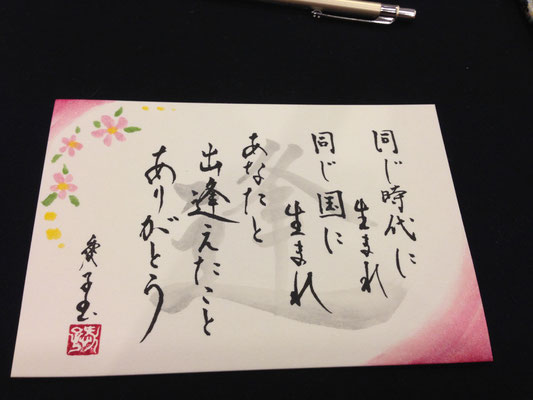 同じ時代に
生まれ
同じ国に
生まれ
あなたと
出逢えたこと
ありがとう
逢